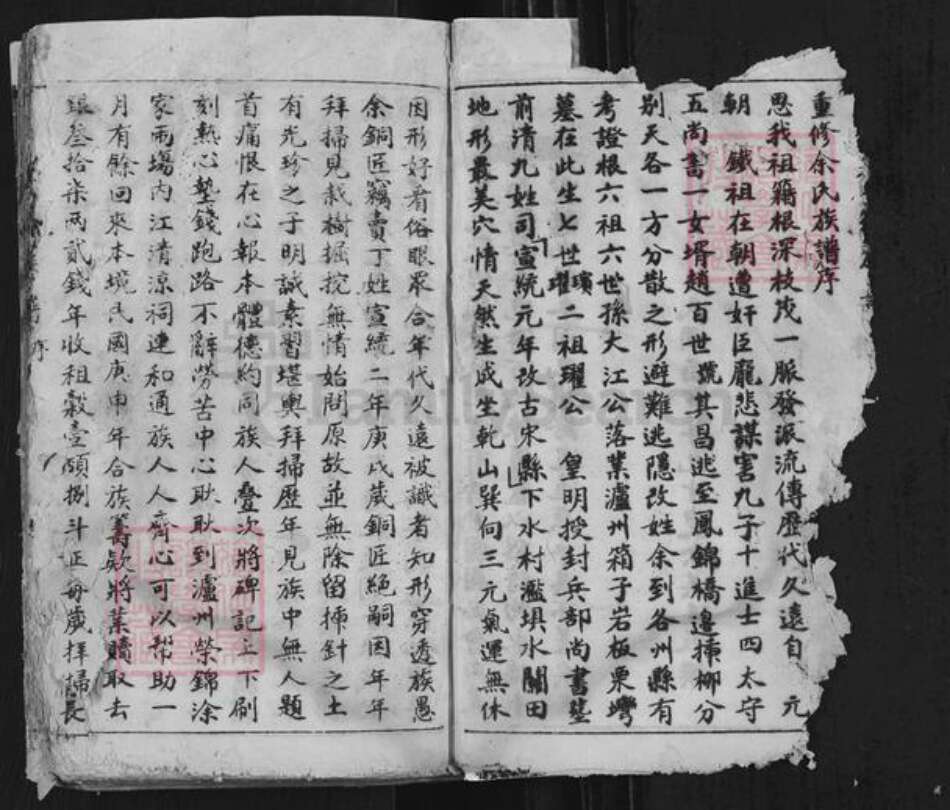 重修余氏族譜序
思我祖籍根深枝茂一脈發派流傳歷代久遠自 元
朝 鐵祖在朝遭奸臣龐悲謀害九子十進士四太守
五尚書一女壻趙百世號其昌逃至鳳錦橋邊揷柳分
别天各一方分散之形避難逃隱改姓余到各州縣有
考證根六祖六世孫大江公落業瀘州箱子岩板栗灣
墓在此生七世璸珊二祖珊公 皇明授封兵部尚書墓
前清九姓司宣統元年改古宋縣下水村濫埧水關田
地形最美穴情天然生成坐乾山巽向三元氣運無休
因形好看俗眼眾合年代久遠被識者知形穿透族愚
余銅匠竊賣丁姓宣統二年庚戌歲銅匠絕嗣因年年
拜掃見栽樹掘挖無情始問原故並無除留揷針之土
有光珍之子明誠素習堪輿拜掃歷年見族中無人題
首痛恨在心報本體德約同族人叠次將碑記立下刷
刻熱心墊錢跑路不辭勞苦中心耿耿到瀘州榮錦涂
家兩場內江清涼祠連和通族人人齊心可以帮助一
月有餘回來本境民國庚申年合族籌欵將業贖取去
銀叁拾柒兩貳錢年收租穀壹碩捌斗正每歲拜掃長
序